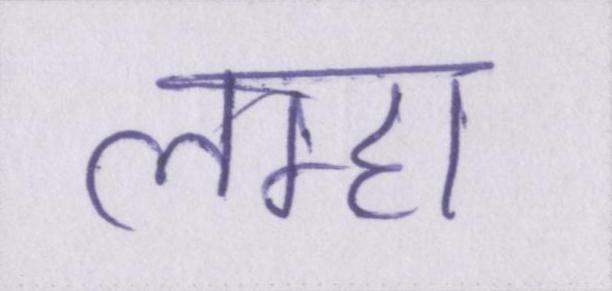 लम्हा